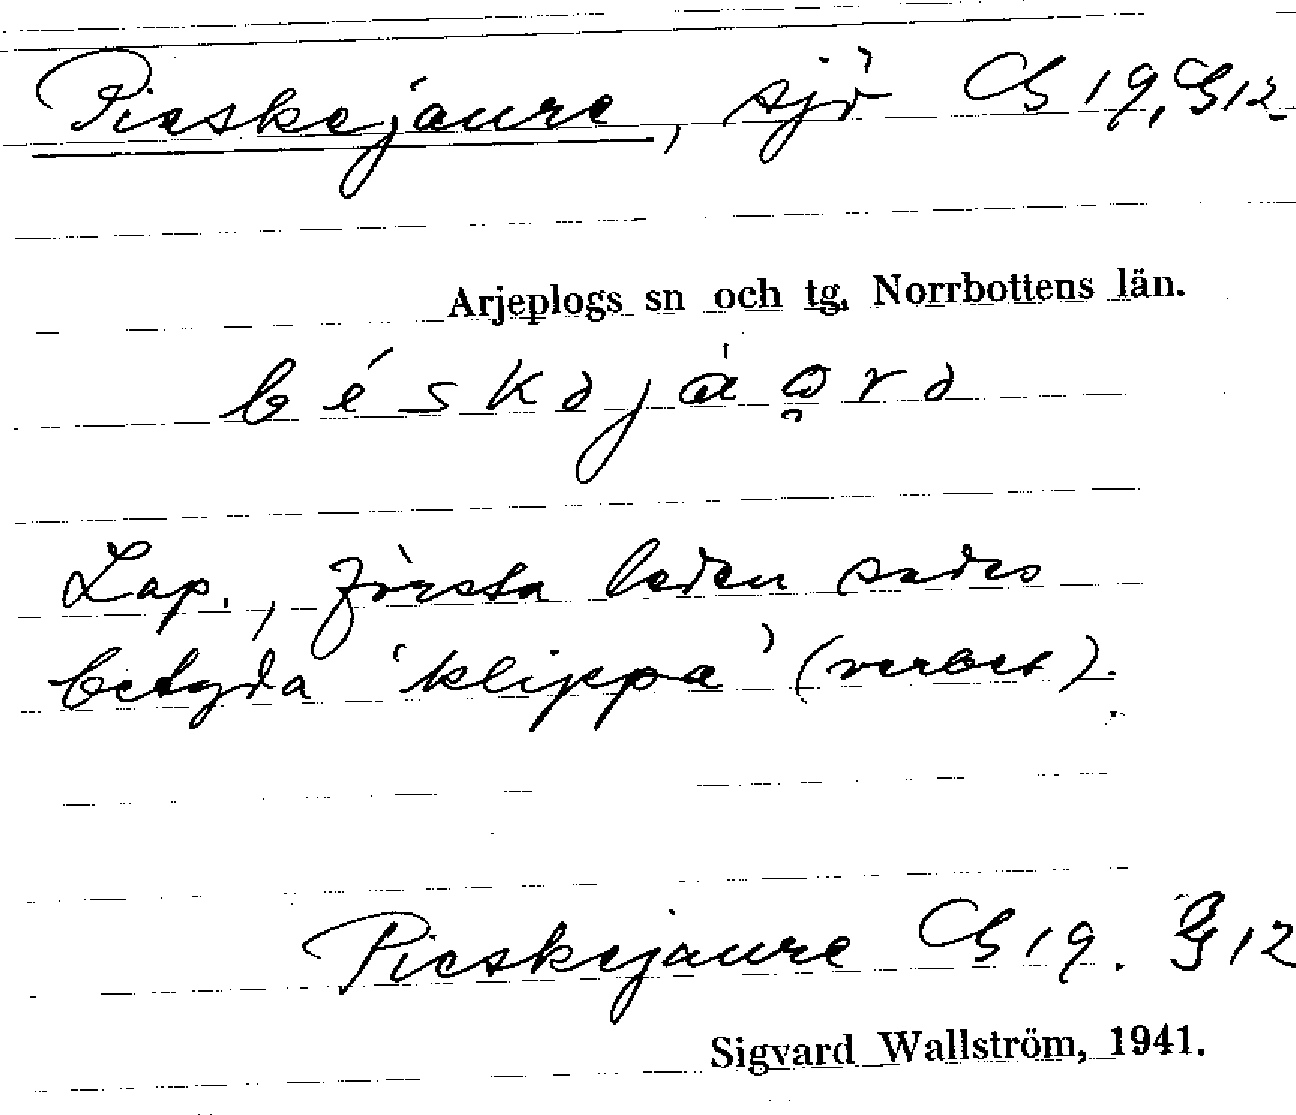 Pieskejaure, sjö G 19, G12
Arjeplogs sn och tg. Norrbottens län.
béskəjáo̯rə
Lap., första leden sades
betyda 'klippa' (verbet).
Pieskejaure G 19. G 12
Sigvard Wallström, 1941.